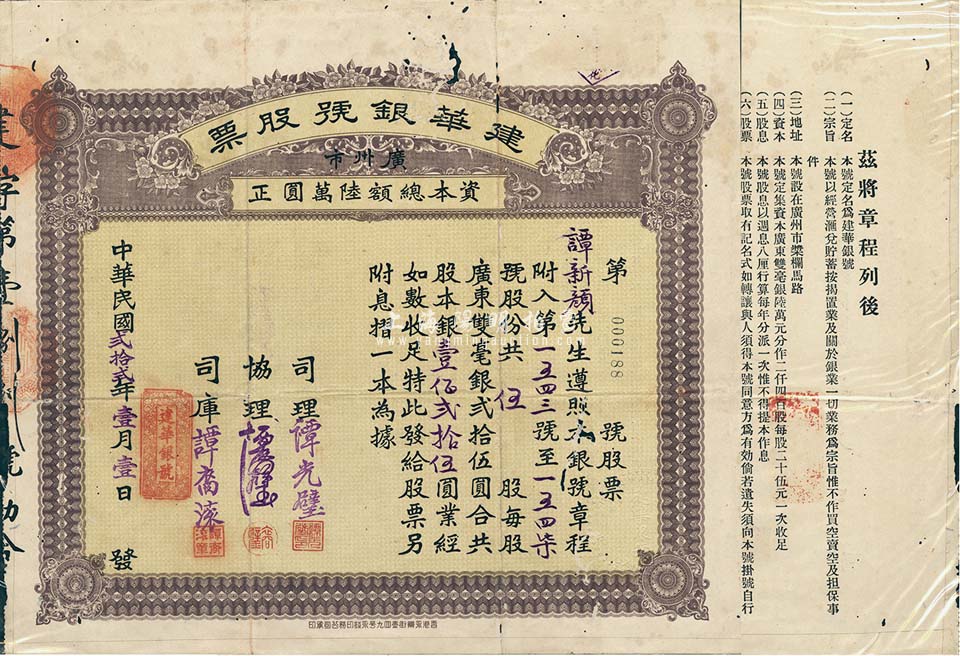 茲將章程列後
(一)定名 本號定名爲建華銀號
(二)宗旨 本號以經營滙兌貯蓄按揭置業及關於銀業一切業務爲宗旨惟不作買空賣空及担保事
件
(三)地址 本號設在廣州市槳欄馬路
(四)資本 本號定集資本廣東雙毫銀陸萬元分作二仟四百股每股二十伍元一次收足
(五)股息 本號股息以週息八厘行算每年分派一次惟不得提本作息
(六)股票 本號股票取有記名式如轉讓與人須得本號同意方爲有効倘若遺失須向本號掛號自行
建華銀號股票
廣州市
資本總額陸萬圓正
第 000188 號股票
譚新 先生遵照本銀號章程
附入第一五四三號至一五四柒
號股份共伍股每股
廣東雙毫銀弍拾伍圓合共
股本銀壹佰弍拾伍圓業經
如數收足特此發給股票另
附息摺一本為據
司理 譚光
協理
司庫 譚
中華民國弍拾弍年壹月壹日 發
建華銀號
上海陽明拍賣
www.yangmingauction.com